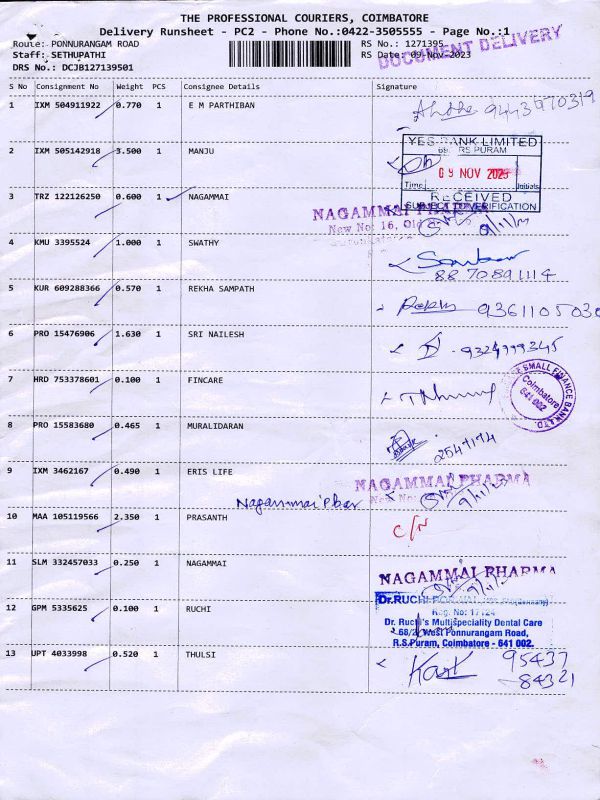 THE PROFESSIONAL COURIERS, COIMBATORE
Delivery Runsheet - PC2 - Phone No.:0422-3505555 - Page No.:1
Route: PONNURANGAM ROAD RS No.: 1271395
Staff: SETHUPATHI RS Date: 09-Nov-2023
DOCUMENT DELIVERY
DRS No.: DCJB127139501
S No Consignment No Weight PCS Consignee Details Signature
1 IXM 504911922 0.770 1 E M PARTHIBAN
2 IXM 505142918 3.500 1 MANJU
YES BANK LIMITED
RS PURAM
09 NOV 2023
Time Initials
RECEIVED
SUBJECT TO VERIFICATION
3 TRZ 122126250 0.600 1 NAGAMMAI
NAGAMMAI PHARMA
New No: 16, Old
4 KMU 3395524 1.000 1 SWATHY
8870891114
5 KUR 609288366 0.570 1 REKHA SAMPATH
6 PRO 15476906 1.630 1 SRI NAILESH
7 HRD 753378601 0.100 1 FINCARE
SMALL FINANCE BANK LTD.
Coimbatore
641 002
8 PRO 15583680 0.465 1 MURALIDARAN
9 IXM 3462167 0.490 1 ERIS LIFE
NAGAMMAI PHARMA
New No:
Nagammai Phar
10 MAA 105119566 2.350 1 PRASANTH C/N
11 SLM 332457033 0.250 1 NAGAMMAI
NAGAMMAI PHARMA
12 GPM 5335625 0.100 1 RUCHI
Dr.RUCHI
Reg. No: 17124
Dr. Ruchi's Multispeciality Dental Care
68/2, West Ponnurangam Road,
R.S.Puram, Coimbatore - 641 002.
13 UPT 4033998 0.520 1 THULSI
95437
84321